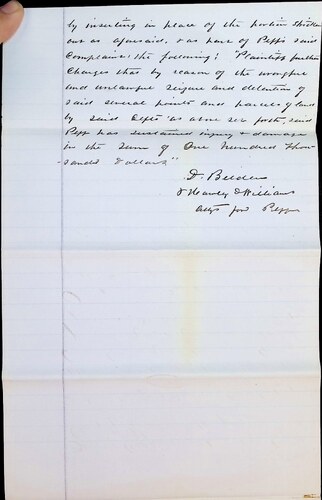 by inserting in place of the portion stricken
out as aforesaid, & as part of Pepps said
Complaint the following; "Plaintiff further
Charges that by reason of the wrongful
and unlawful seizure and detention of
said several points and parcels of land
by said Defts as above set forth, said
Pepp has sustained injury & damage
in the sum of One Hundred Thou-
-sand Dollars."
D.
& Hawley & Williams
Attys for